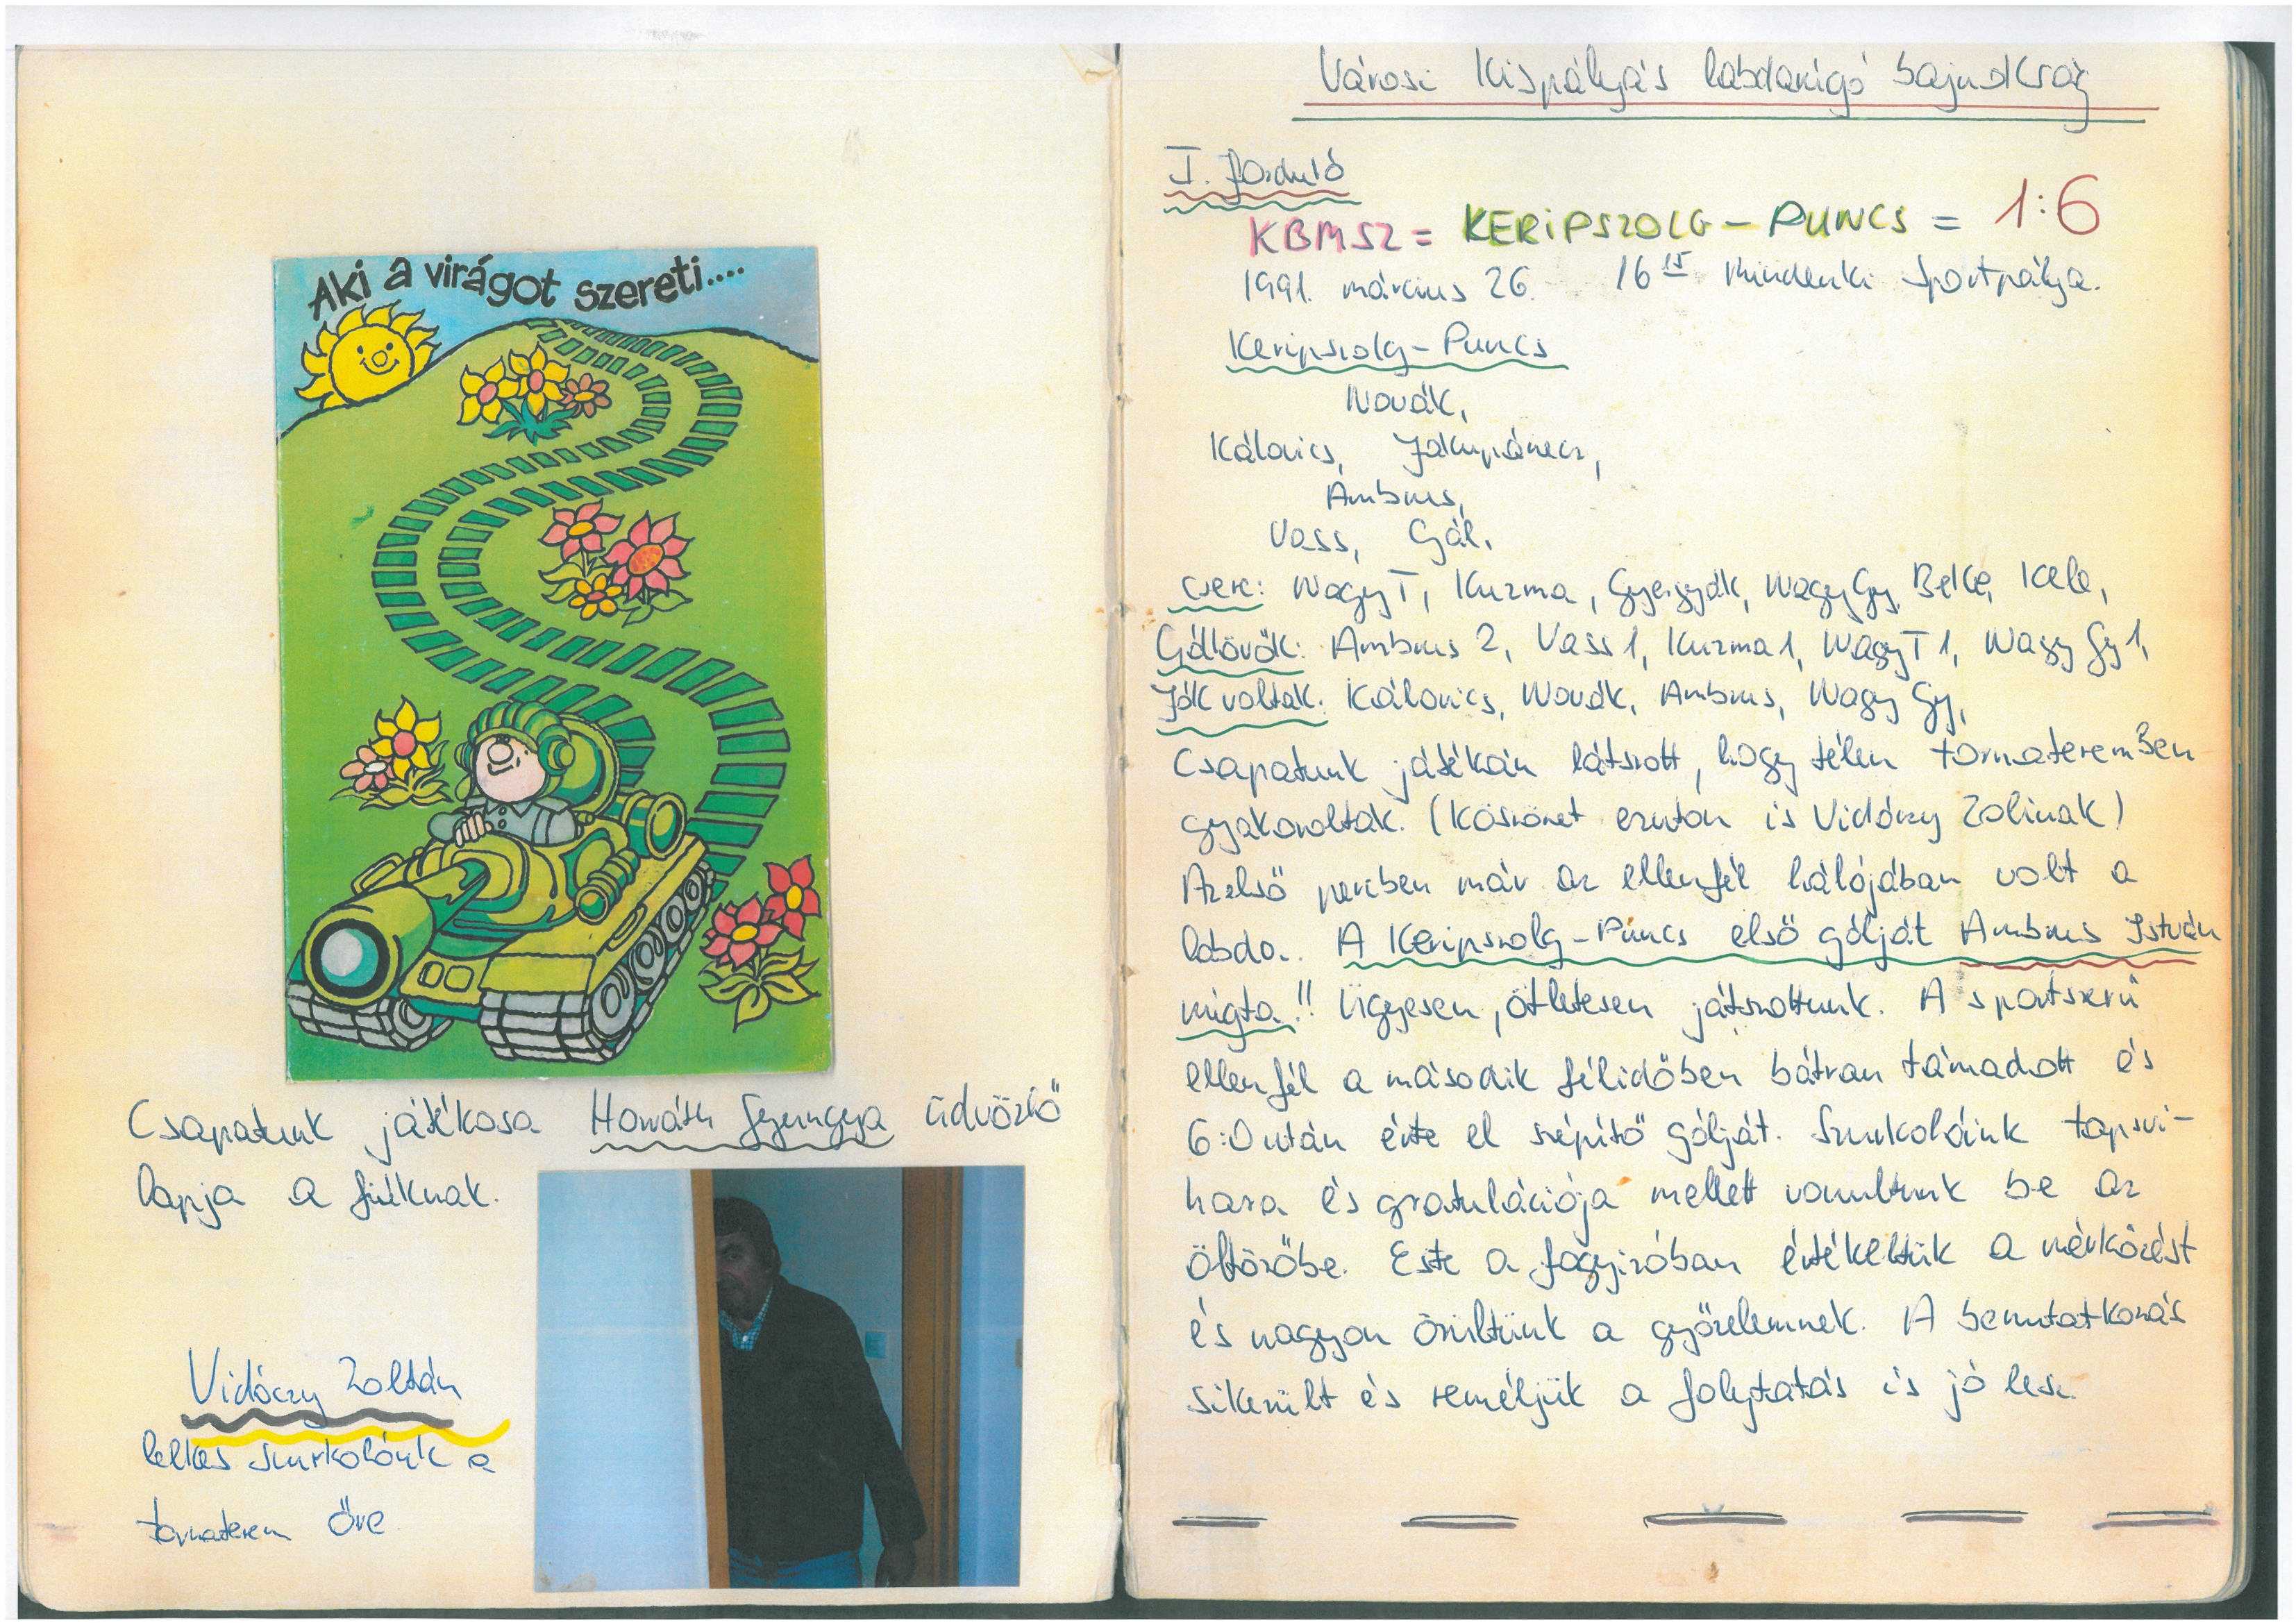 Aki a virágot szereti....
Csapatunk játékosa Horváth Gyöngye üdvözlő
lapja a fiúknak.
Vidóczy Zoltán
lelkes szurkolónk a
tornaterem őre
Városi Kispályás labdarúgó bajnokság
I. forduló
KBMSZ = KERIPSZOLG - PUNCS = 1:6
1991. március 26. 16 15 Mindenki Sportpálya.
Keripszolg - Puncs
Novák,
Kálovics, Jakupánecz,
Ambrus,
Vass, Gál.
Csere: Nagy T, Kuzma, Gyergyák, Nagy Gy, Beke, Kele,
Góllövők: Ambrus 2, Vass 1, Kuzma 1, Nagy T 1, Nagy Gy 1,
Jók voltak: Kálovics, Novák, Ambrus, Nagy Gy,
Csapatunk játékán látszott, hogy télen tornateremben
gyakoroltak. (Köszönet ezúton is Vidóczy Zolinak!)
Az első percben már az ellenfél hálójában volt a
labda. A Keripszolg - Puncs első gólját Ambrus István
rúgta!! Ügyesen, ötletesen játszottunk. A sportszerű
ellenfél a második félidőben bátran támadott és
6:0 után érte el szépítő gólját. Szurkolóink tapsvi-
hara és gratulációja mellett vonultunk be az
öltözőbe. Este a fagyizóban értékeltük a mérkőzést
és nagyon örültünk a győzelemnek. A bemutatkozás
sikerült és reméljük a folytatás is jó lesz.